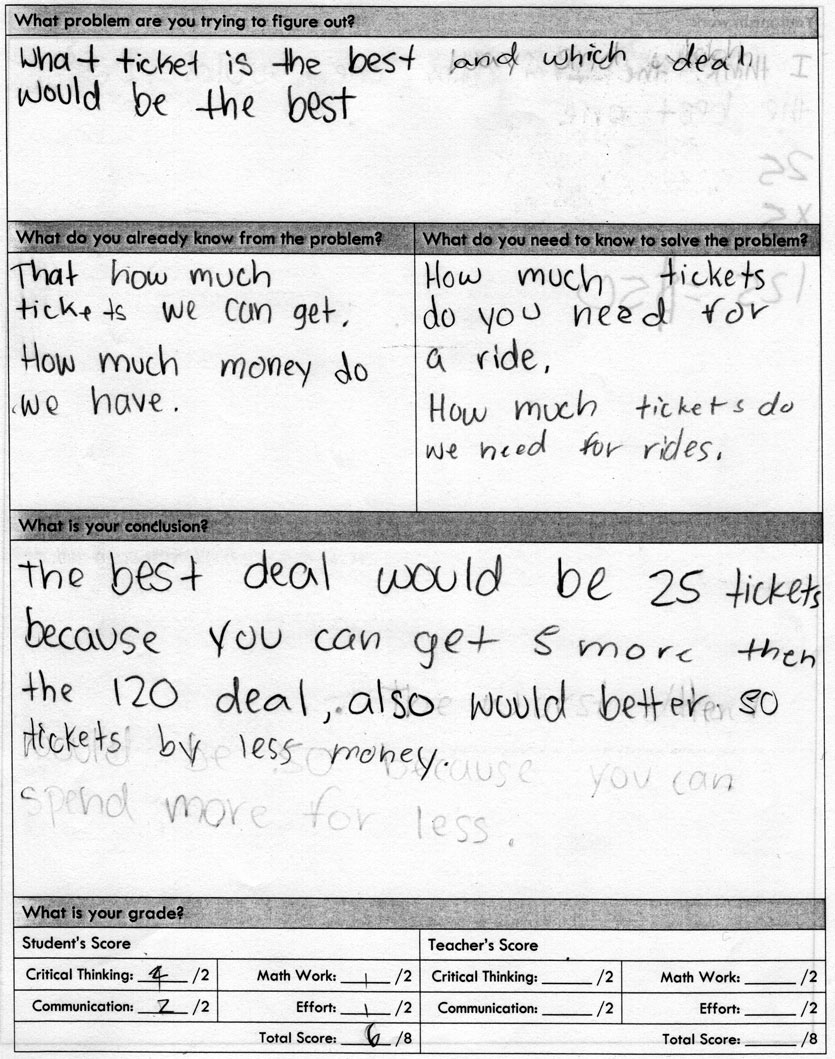 What problem are you trying to figure out?
What ticket is the best and which deal
would be the best
What do you already know from the problem?
That how much
tickets we can get.
How much money do
we have.
What do you need to know to solve the problem?
How much tickets
do you need for
a ride,
How much tickets do
we need for rides.
What is your conclusion?
the best deal would be 25 tickets
because you can get 5 more then
the 120 deal, also would better 50
tickets by less money.
would be 50 because you can
spend more for less.
What is your grade?
Student's Score
Critical Thinking: /2
Math Work: 1 /2
Communication: 2 /2
Effort: 1 /2
Total Score: 6 /8
Teacher's Score
Critical Thinking: /2
Math Work: /2
Communication: /2
Effort: /2
Total Score: /8